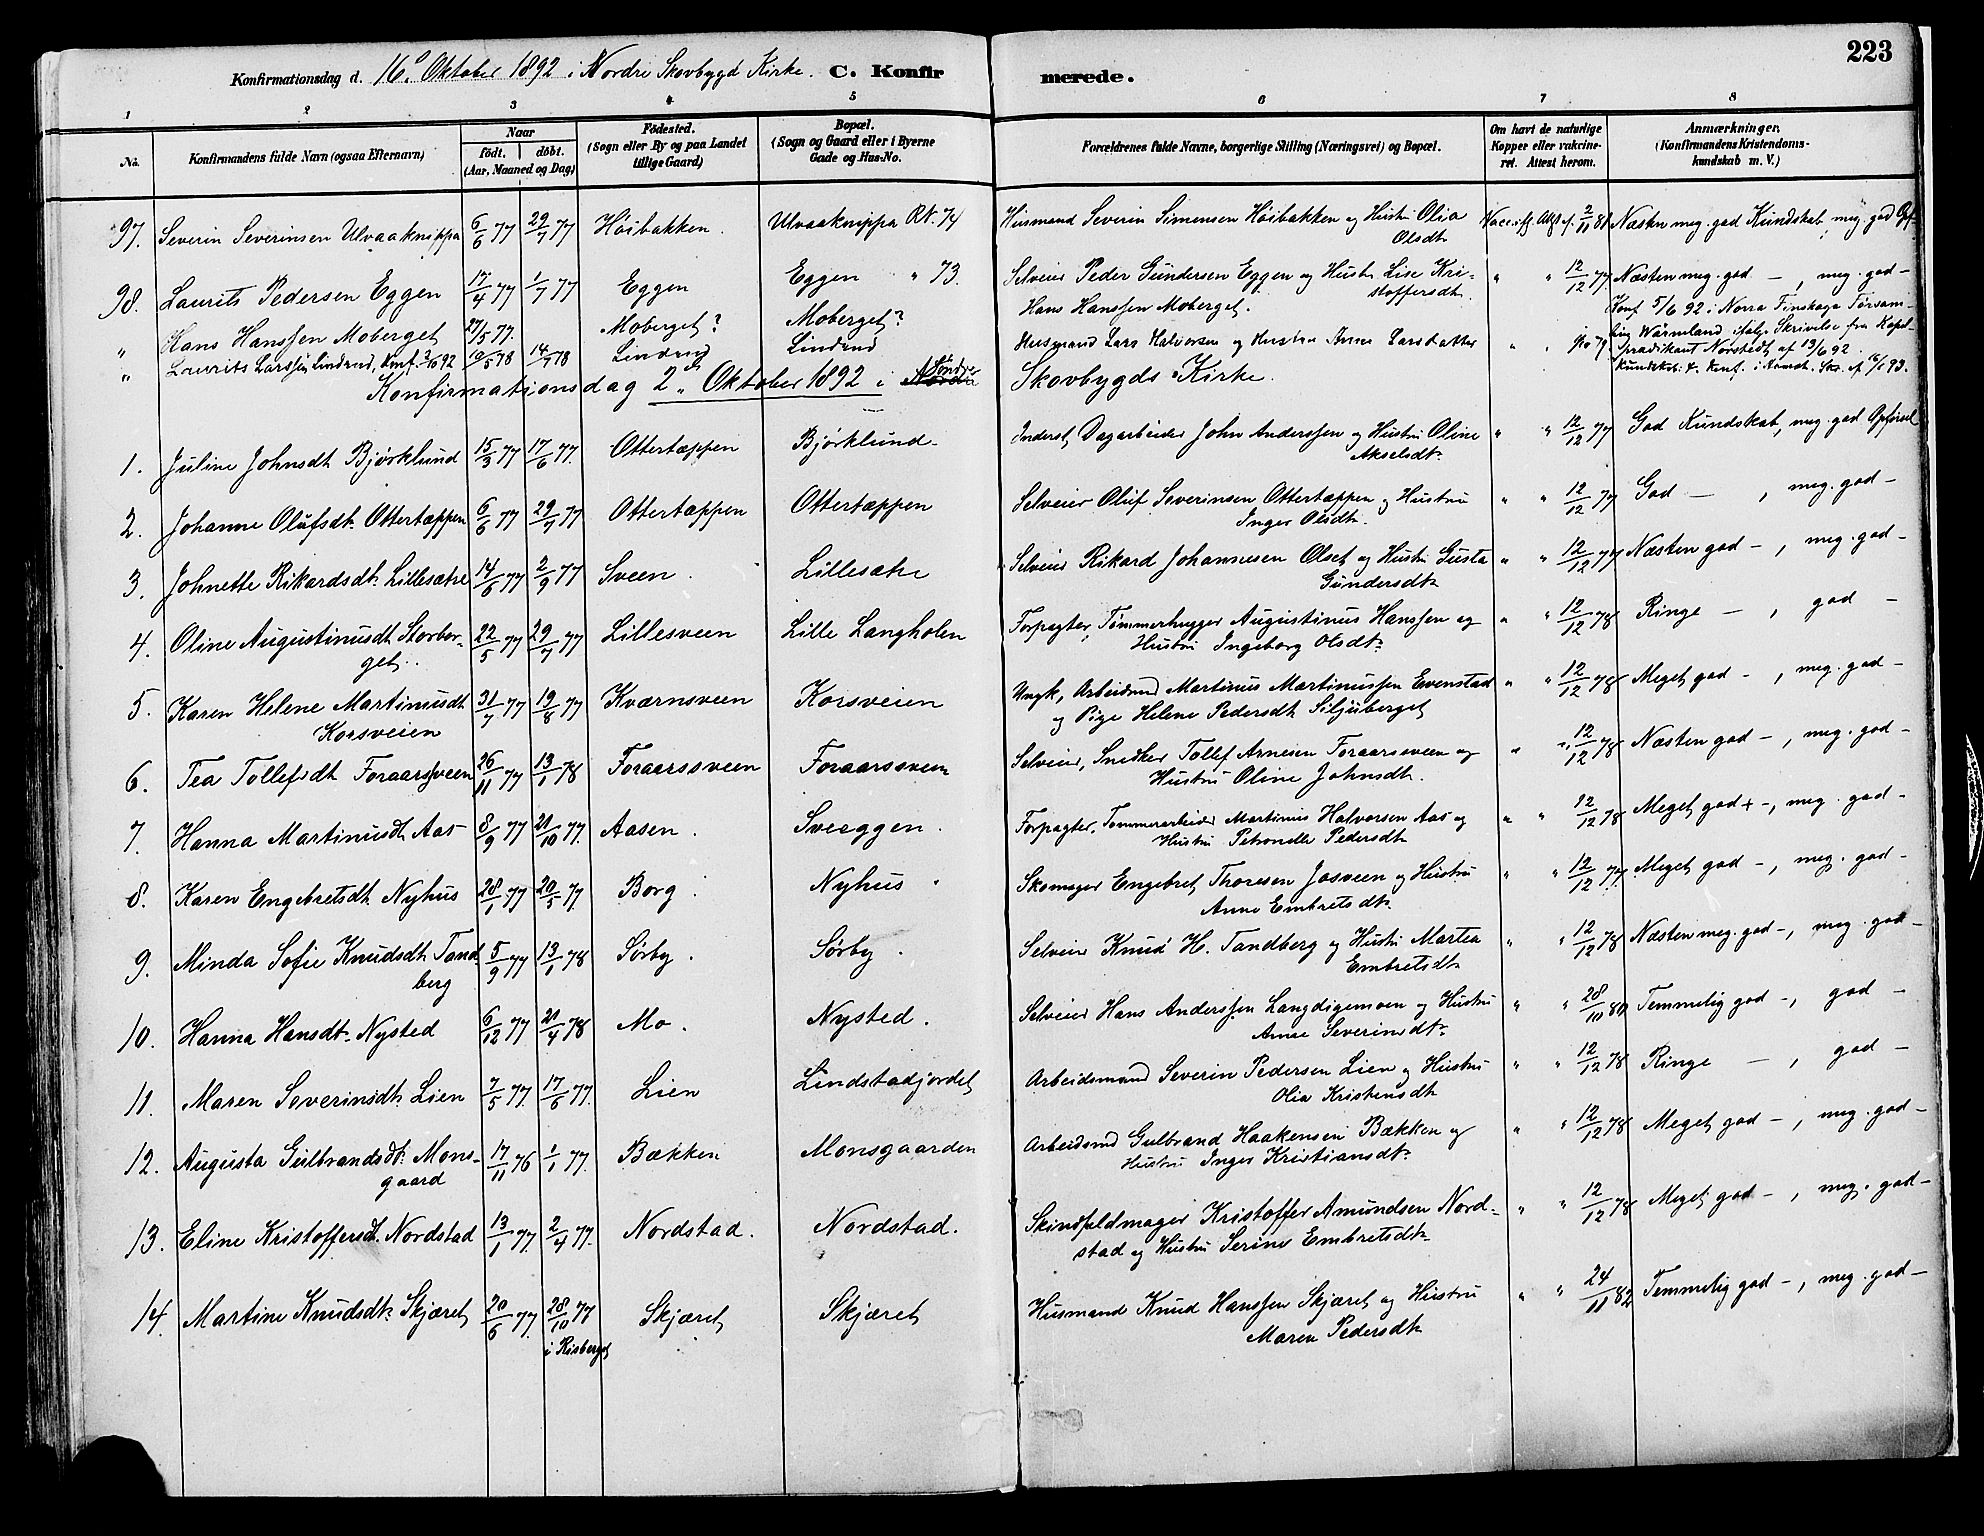 223
Konfirmationsdag d. 16de Oktober 1892 i Nordre Skovbygd Kirke. C. Konfirmerede.
1 2 3 4 5 6 7 8
No. Konfirmandens fulde Navn (ogsaa Efternavn) Naar født. døbt. (Aar, Maaned og Dag) Fødested. (Sogn eller By og paa Landet tillige Gaard) Bopæl. (Sogn og Gaard eller i Byerne Gade og Hus-No. Forældrenes fulde Navne, borgerlige Stilling (Næringsvei) og Bopæl. Om havt de naturlige Kopper eller vakcineret. Attest herom. Anmærkninger. (Konfirmandens Kristendomskundskab m. V.)
97. Severin Severinsen Ulvaaknippa 6/6 77 29/7 77 Höibakken. Ulvaaknippa Rt. 74 Husmand Severin Simensen Höibakken og Hustru Olia Olsdt. Vacc. iflg. Att. af 2/11 81 Næsten meg. god Kundskab, meg. god Opf.
98. Laurits Pedersen Eggen 17/4 77 1/7 77 Eggen Eggen " 73. Selveier Peder Gundersen Eggen og Hustru Lise Kristoffersdt. " " 12/12 77 Næsten meg. god —, meg. god —
" Hans Hanssen Moberget 27/5 77. Moberget? Moberget? Hans Hanssen Moberget. Konf 5/6 92 i Norra Finskoga Församling Wärmland ifølge Skrivelse fra Kapelpredikant Norstedt af 13/6 92.
" Laurits Larssen Lindrud, Konf. 2/10 92 10/5 78 14/7 78 Lindrud Lindrud Husmand Lars Halvorsen og Hustru Anne Larsdatter " "
Konfirmationsdag 2den Oktober 1892 i Søndre Skovbygds Kirke.
1. Juline Johnsdt Bjørklund 15/3 77 17/6 77. Ottertæppen Bjørklund. Inderst, Dagarbeider John Anderssen og Hustru Oline Akselsdt. " " 12/12 77 God Kundskab, meg. god Opførsel
2. Johanne Olufsdt. Ottertæppen 6/6 77 29/7 77 Ottertæppen Ottertæppen Selveier Oluf Severinsen Ottertæppen og Hustru Inger Olsdt. " " 12/12 77 God —, meg. god —
3. Johnette Rikardsdt. Lillesætre 14/6 77 2/9 77 Sveen. Lillesætre Selveier Rikard Johannesen Olset og Hustru Gusta Gundersdt. " " 12/12 77 Næsten god —, meg. god —
4. Oline Augustinusdt Storberget. 22/5 77 29/7 77 Lillesveen Lille Langholen Forpagter, Tømmerhugger Augustinus Hanssen og Hustru Ingeborg Olsdt. " " 12/12 78 Ringe —, god —
5. Karen Helene Martinusdt Korsveien 31/7 77 19/8 77 Kværnsveen Korsveien Ungk, Arbeidsmd Martinus Martinussen Evenstad og Pige Helene Pedersdt Siljuberget " " 12/12 78 Meget god —, meg. god —
6. Tea Tollefsdt Foraarssveen 26/11 77 13/1 78 Foraarssveen Foraarssveen Selveier, Snedker Tollef Arnesen Foraarssveen og Hustru Oline Johnsdt. " " 12/12 78 Næsten god —, meg. god —
7. Hanna Martinusdt Aas 8/9 77 21/10 77. Aasen. Sveeggen. Forpagter, Tømmerarbeider Martinus Halvorsen Aas og Hustru Petronelle Pedersdt " " 12/12 78 Meget god + —, meg. god —
8. Karen Engebretsdt Nyhus 28/1 77 20/5 77 Borg. Nyhus Skomager Engebret Thoresen Josveen og Hustru Anne Embretsdt. " " 12/12 77. Meget god —, meg. god —
9. Minda Sofie Knudsdt Tandberg 5/9 77 13/1 78 Sørby. Sørby. Selveier Knud H. Tandberg og Hustru Martea Embretsdt " " 12/12 78 Næsten meg. god —, meg. god —
10. Hanna Hansdt. Nysted 6/12 77 21/4 78 Mo. Nysted. Selveier Hans Anderssen Langdigemoen og Hustru Anne Severinsdt. " " 28/10 80 Temmelig god —, god —
11. Maren Severinsdt. Lien 7/5 77. 17/6 77. Lien Lindstadjordet Arbeidsmand Severin Pedersen Lien og Hustru Olia Kristensdt " " 12/12 78 Ringe —, god —
12. Augusta Gulbrandsdt. Monsgaard 17/11 76 1/1 77. Bækken Monsgaarden Arbeidsmd Gulbrand Haakensen Bækken og Hustru Inger Kristiansdt. " " 12/12 78 Meget god —, meg. god —
13. Eline Kristoffersdt. Nordstad 13/1 77. 2/4 77. Nordstad. Nordstad. Skindfeldmager Kristoffer Amundsen Nordstad og Hustru Serine Embretsdt. " " 12/12 78 Meget god —, meg. god —
14. Martine Knudsdt. Skjæret 20/6 77. 28/10 77 i Risberget Skjæret Skjæret Husmand Knud Hanssen Skjæret og Hustru Maren Pedersdt. " " 24/11 82 Temmelig god —, meg. god —